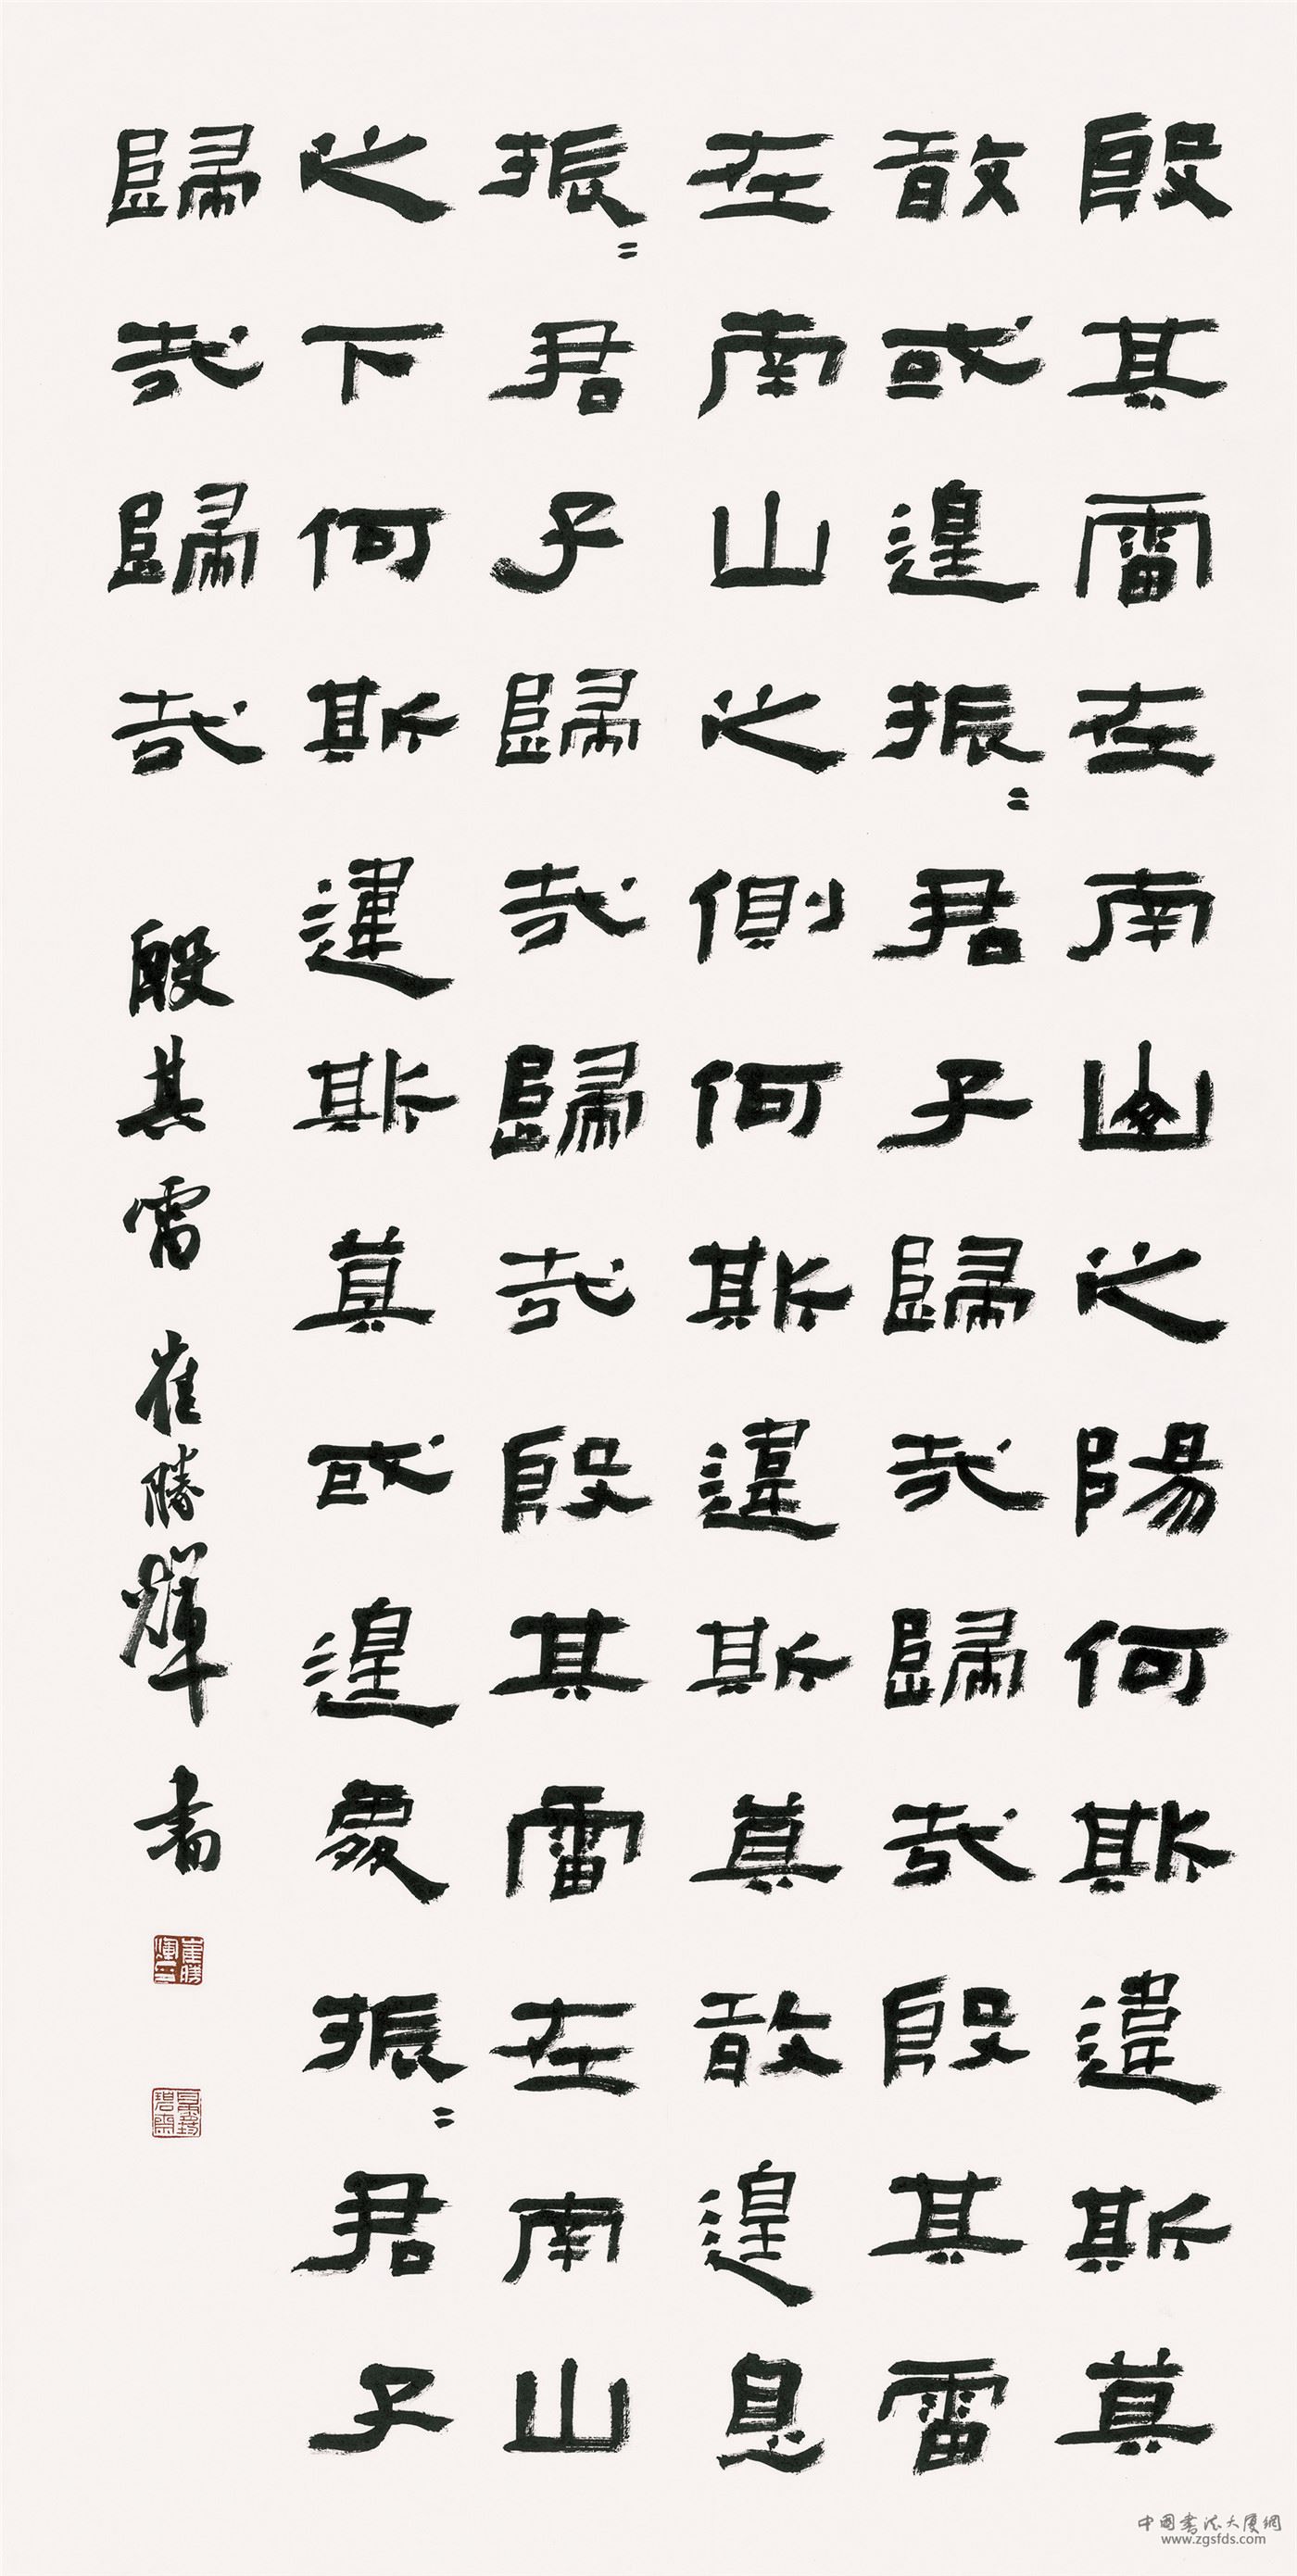 殷其雷在南山之陽何斯違斯莫
敢或遑振〻君子歸哉歸哉殷其雷
在南山之側何斯違斯莫敢遑息
振〻君子歸哉歸哉殷其雷在南山
之下何斯違斯莫或遑處振〻君子
歸哉歸哉
殷其雷 崔勝輝書
崔勝輝印
中國書法大廈網
www.zgsfds.com